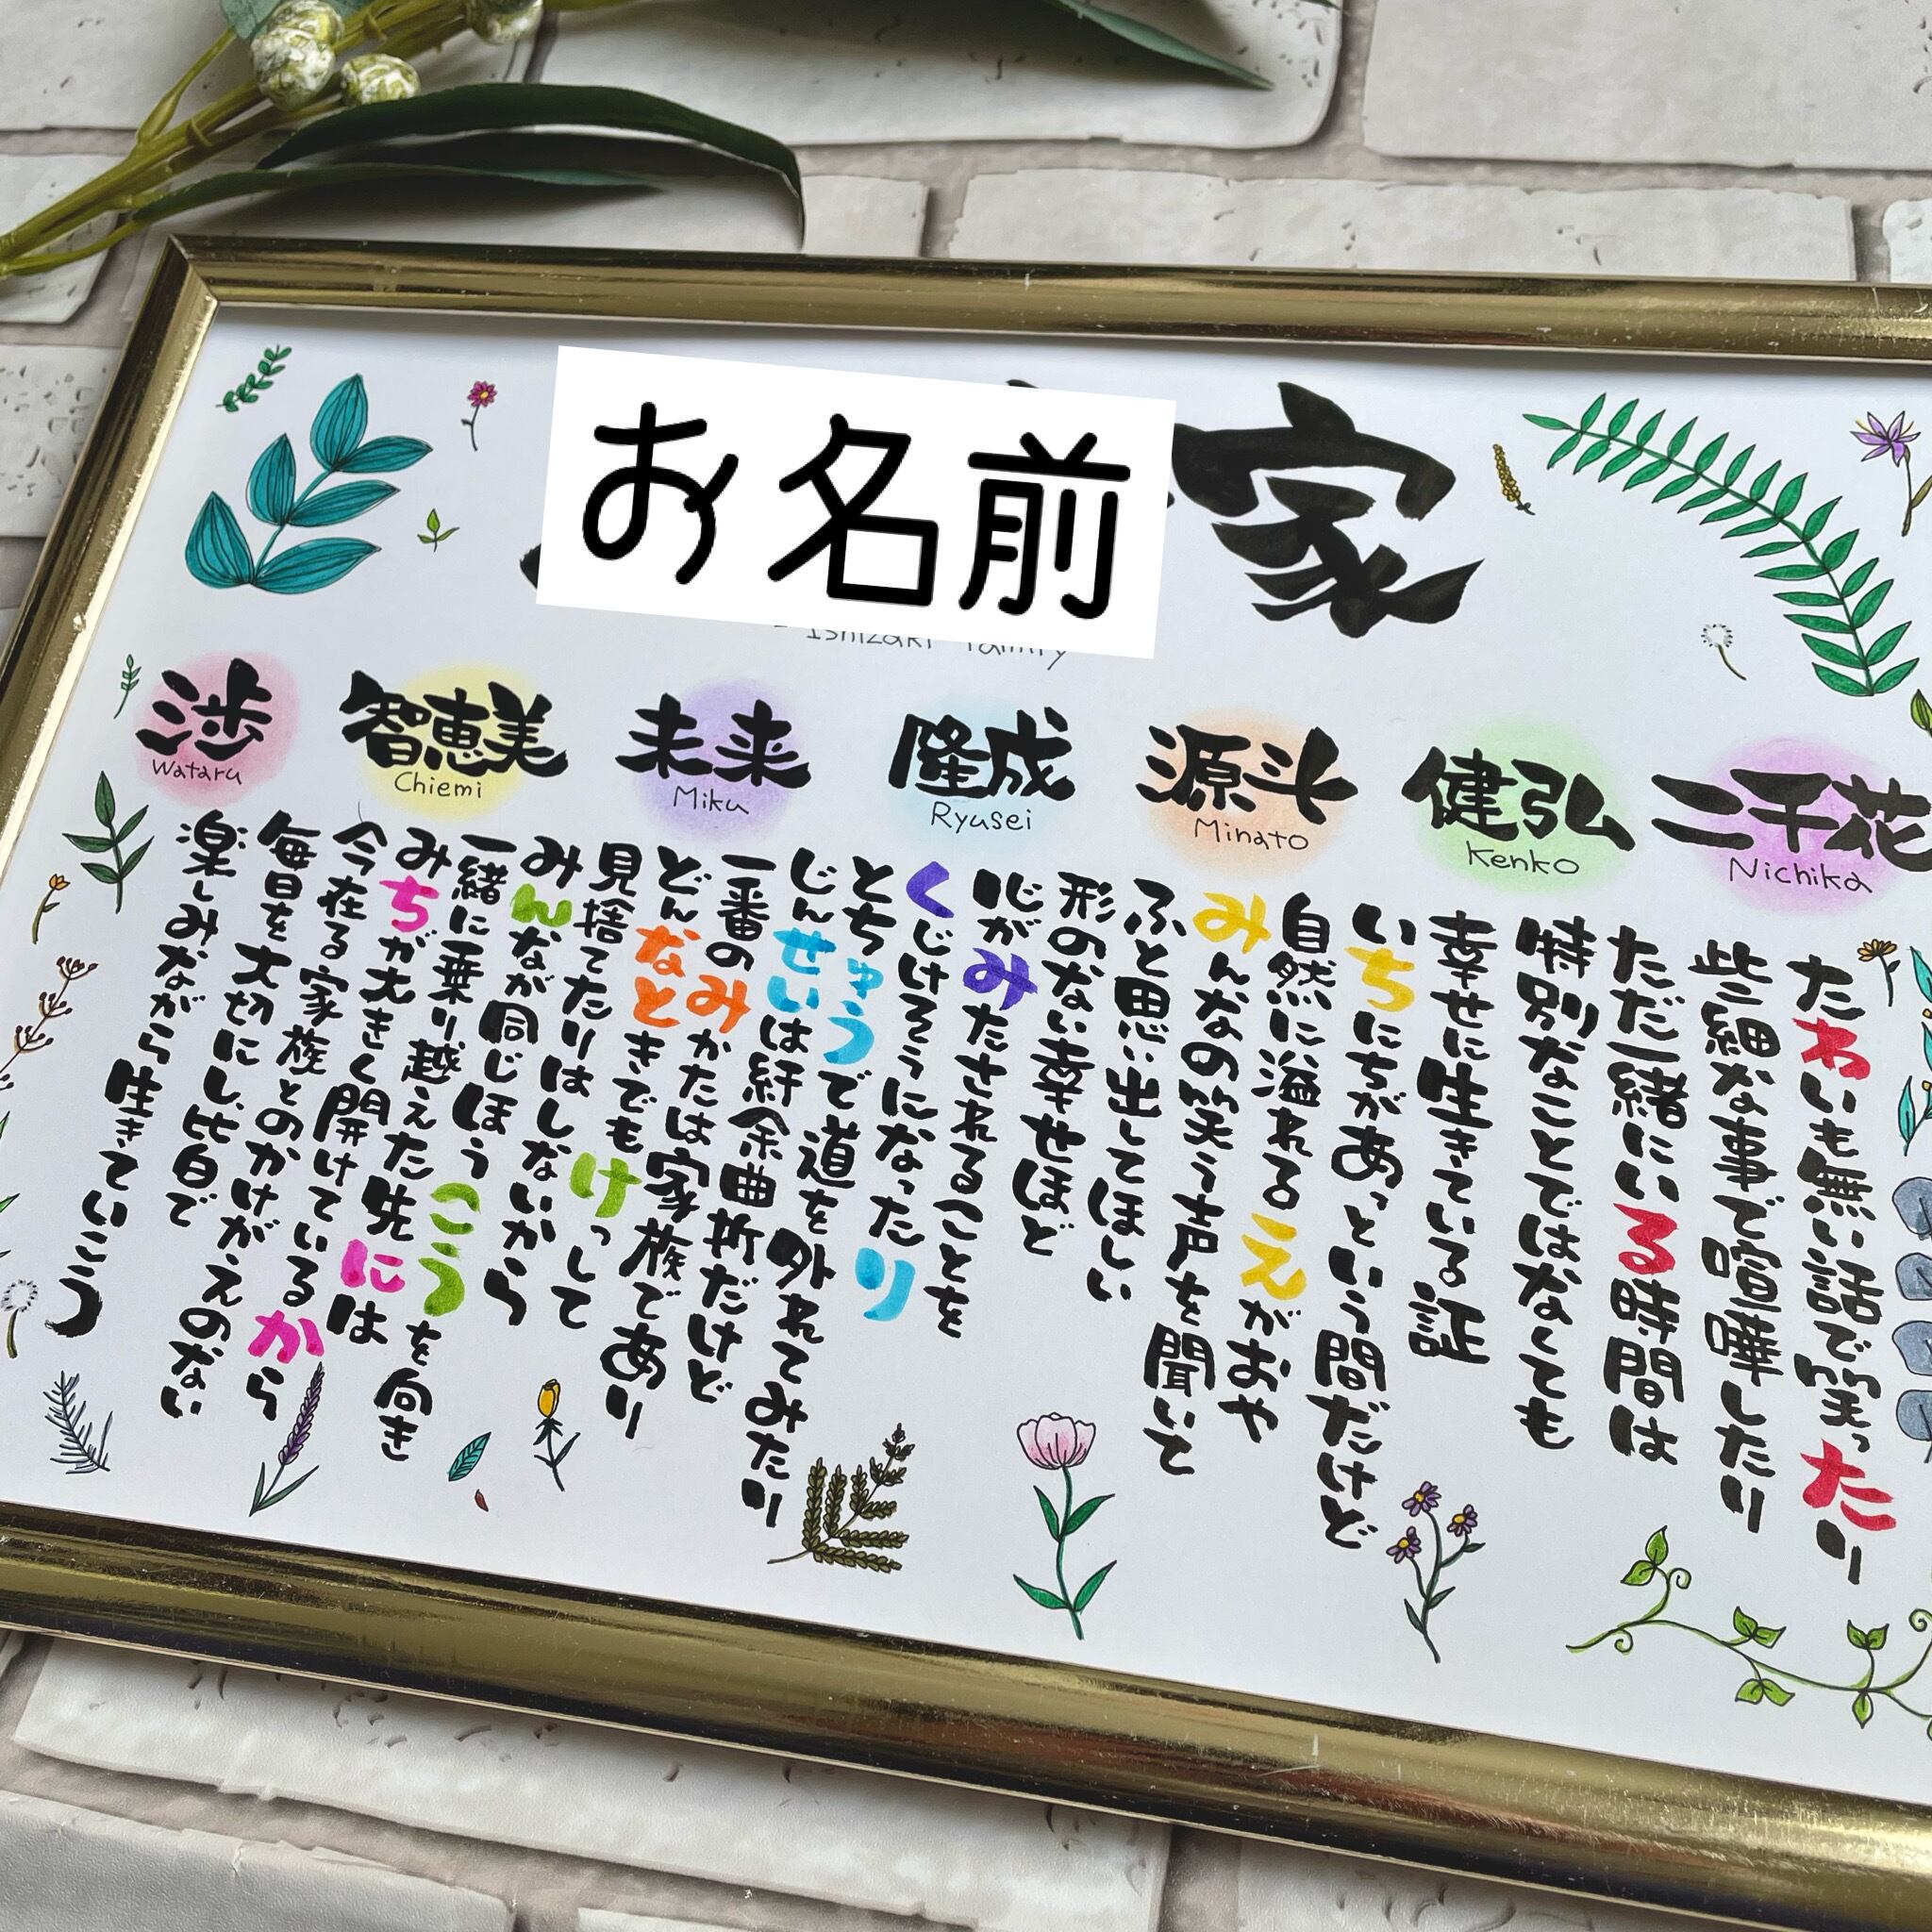 お名前
家
渉 智恵美 未来 隆成 源斗 健弘 二千花
Wataru Chiemi Miku Ryusei Minato Kenko Nichika
たわいも無い話で笑ったり
些細な事で喧嘩したり
ただ一緒にいる時間は
特別なことではなくても
幸せに生きている証
いちにちがあっという間だけど
自然に溢れるえがおや
みんなの笑う声を聞いて
ふと思い出してほしい
形のない幸せほど
心がみたされることを
くじけそうになったり
とちゅうで道を外れてみたり
じんせいは紆余曲折だけど
一番のみかたは家族であり
どんなときでもけっして
見捨てたりはしないから
みんなが同じほうこうを向き
一緒に乗り越えた先には
みちが大きく開けているから
今在る家族とのかけがえのない
毎日を大切にし、皆で
楽しみながら生きていこう